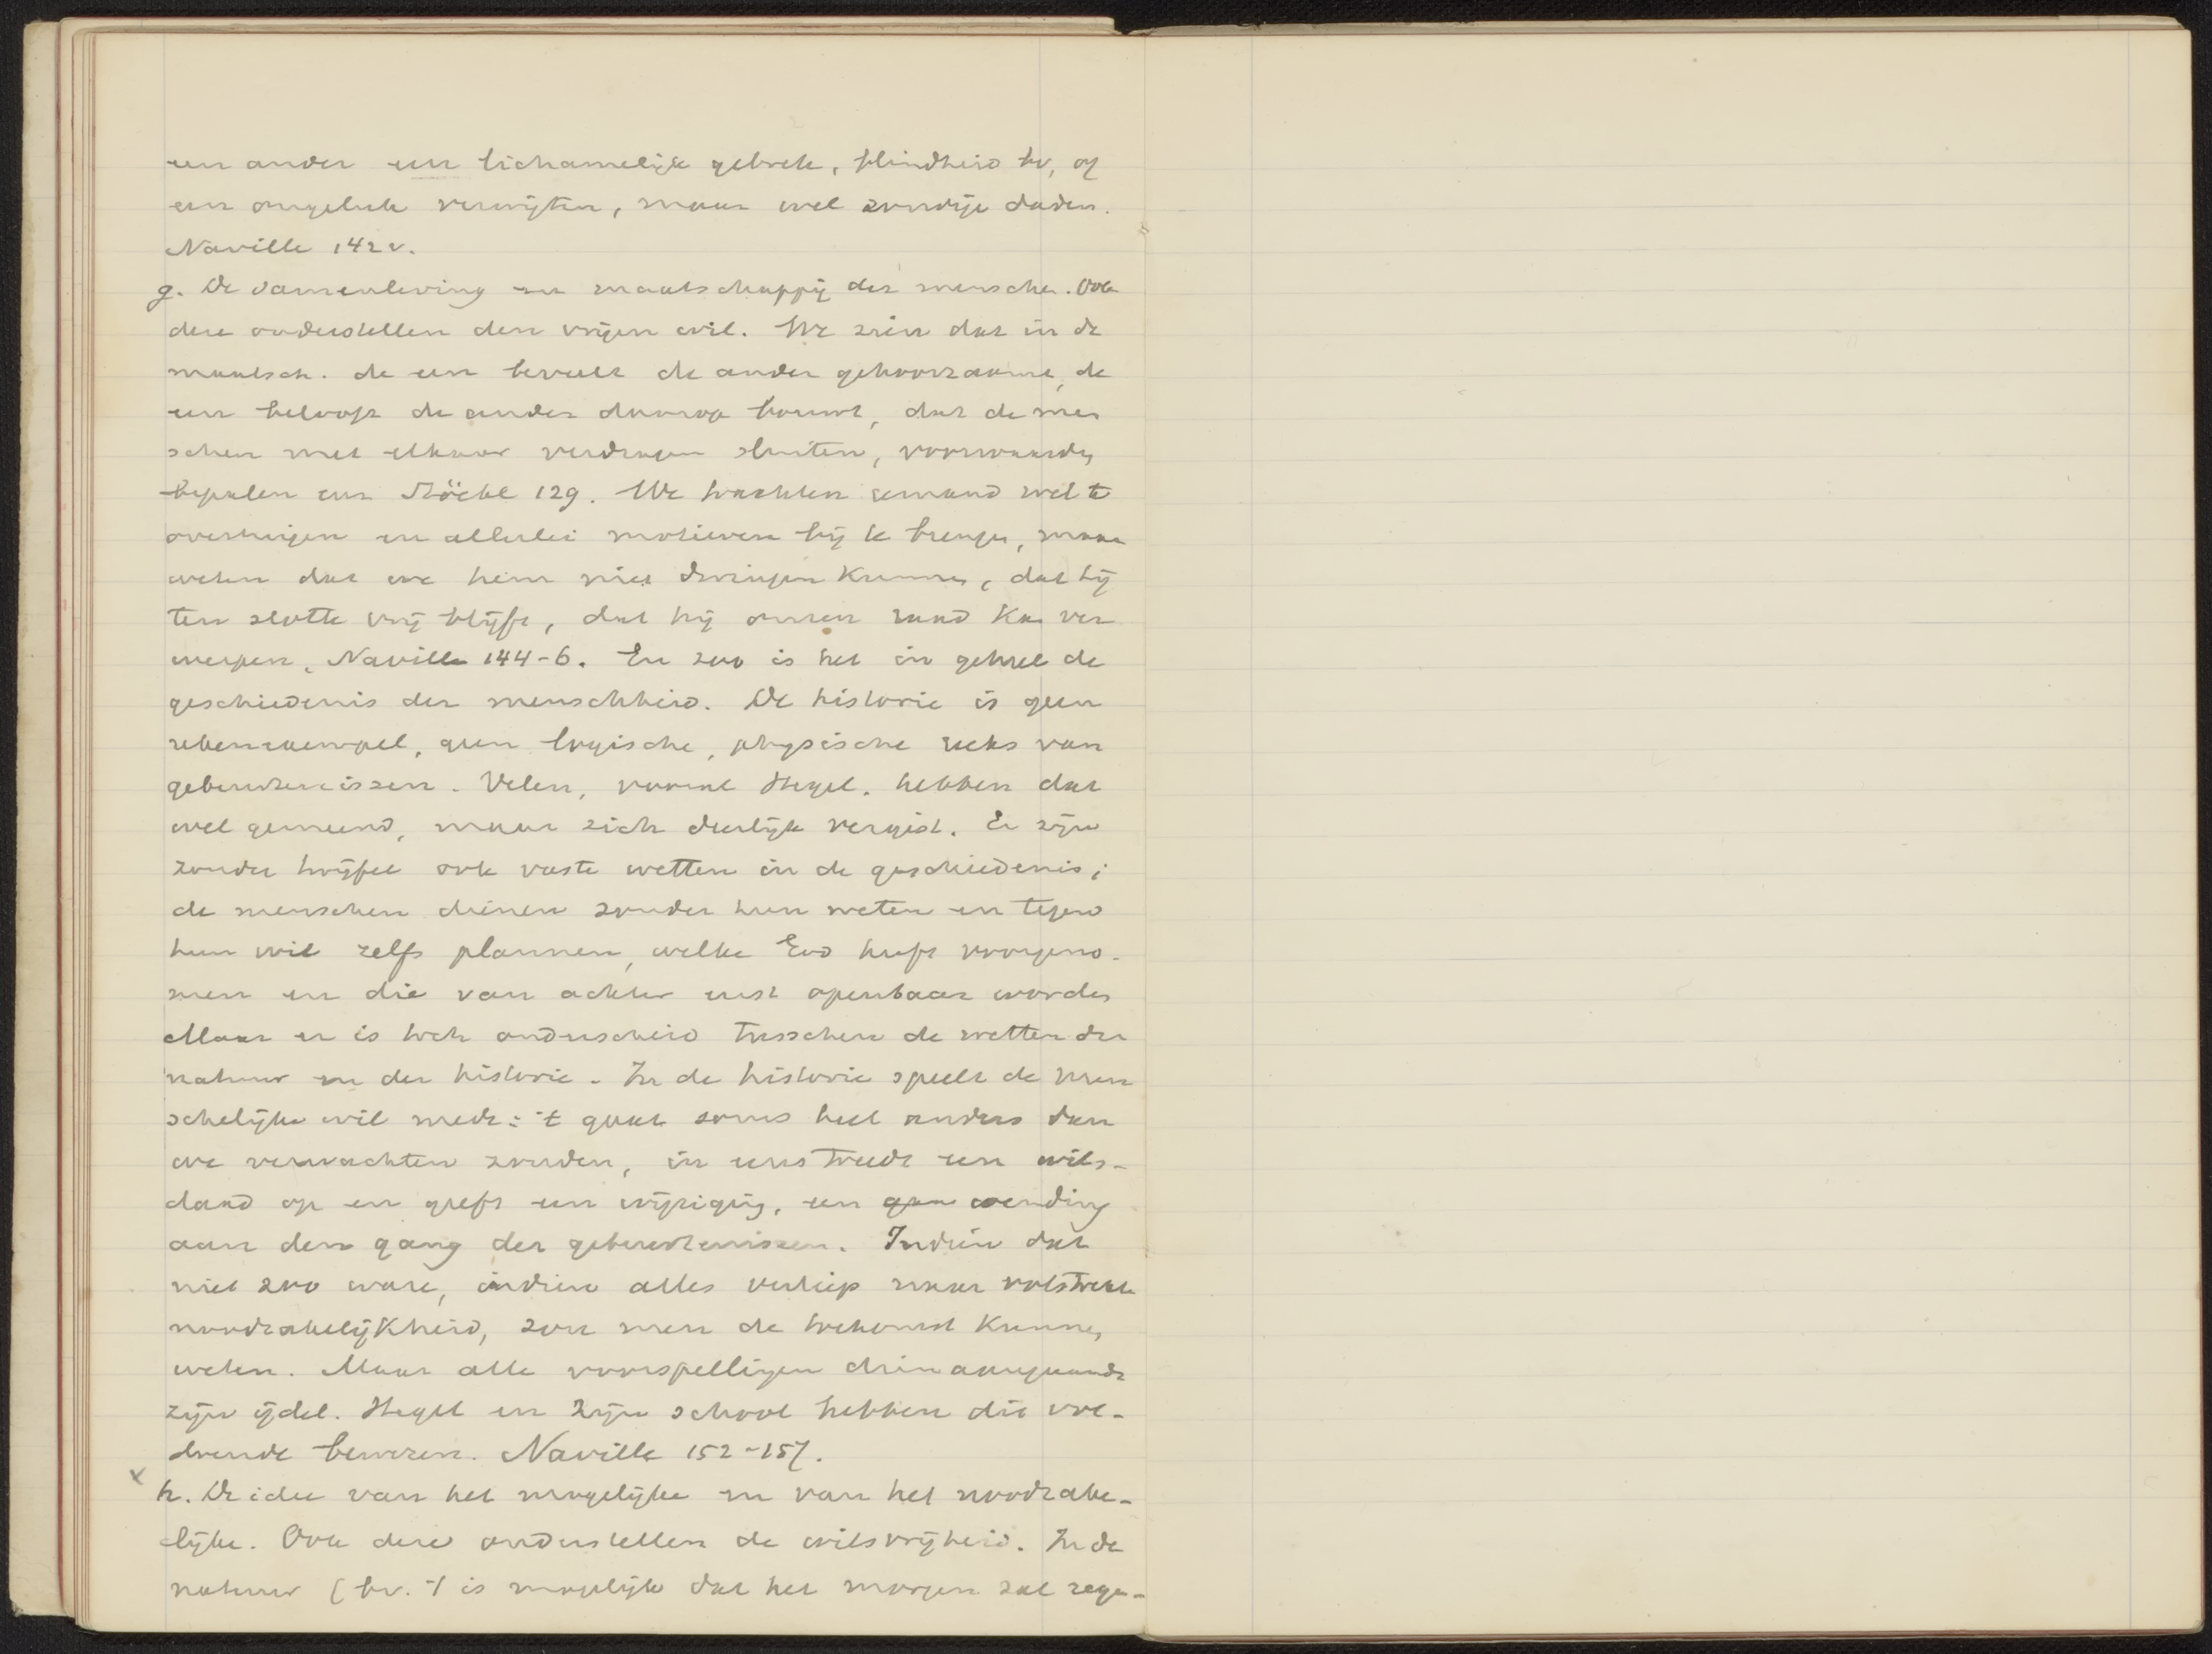 een ander een lichamelijk gebrek, blindheid bv, of
een ongeluk verwijten, maar wel zondige daden.
Naville 142 v.
g. De samenleving en maatschappij der menschen. Ook
deze onderstellen den vrijen wil. We zien dat in de
maatsch. de een beveelt de ander gehoorzaamt, de
een belooft de ander daarop bouwt, dat de men
schen met elkaar verdragen sluiten, voorwaarden
bepalen enz Stöckl 129. We trachten iemand wel te
overtuigen en allerlei motieven bij te brengen, maar
weten dat we hem niet dwingen kunnen, dat hij
ten slotte vrij blijft, dat hij onzen raad kan ver
werpen, Naville 144-6. En zoo is het in geheel de
geschiedenis der menschheid. De historie is geen
rekenexempel, geen logische, physische reeks van
gebeurtenissen. Velen, vooral Hegel, hebben dat
wel gemeend, maar zich deerlijk vergist. Er zijn
zonder twijfel ook vaste wetten in de geschiedenis;
de menschen dienen zonder hun weten en tegen
hun wil zelfs plannen, welke God heeft voorgeno-
men en die van achter eerst openbaar worden
Maar er is toch onderscheid tusschen de wetten der
natuur en der historie. In de historie speelt de men
schelijke wil mede: 't gaat soms heel anders dan
we verwachten zouden, in eens treedt een wils-
daad op en geeft een wijziging, een gan wending
aan den gang der gebeurtenissen. Indien dat
niet zoo ware, indien alles verliep naar volstrekte
noodzakelijkheid, zou men de toekomst kunnen
weten. Maar alle voorspellingen dien aangaande
zijn ijdel. Hegel en zijn school hebben dit vol-
doende bewezen. Naville 152-157.
x h. De idee van het mogelijke en van het noodzake-
lijke. Ook deze onderstellen de wilsvrijheid. In de
natuur (bv. 't is mogelijk dat het morgen zal rege-